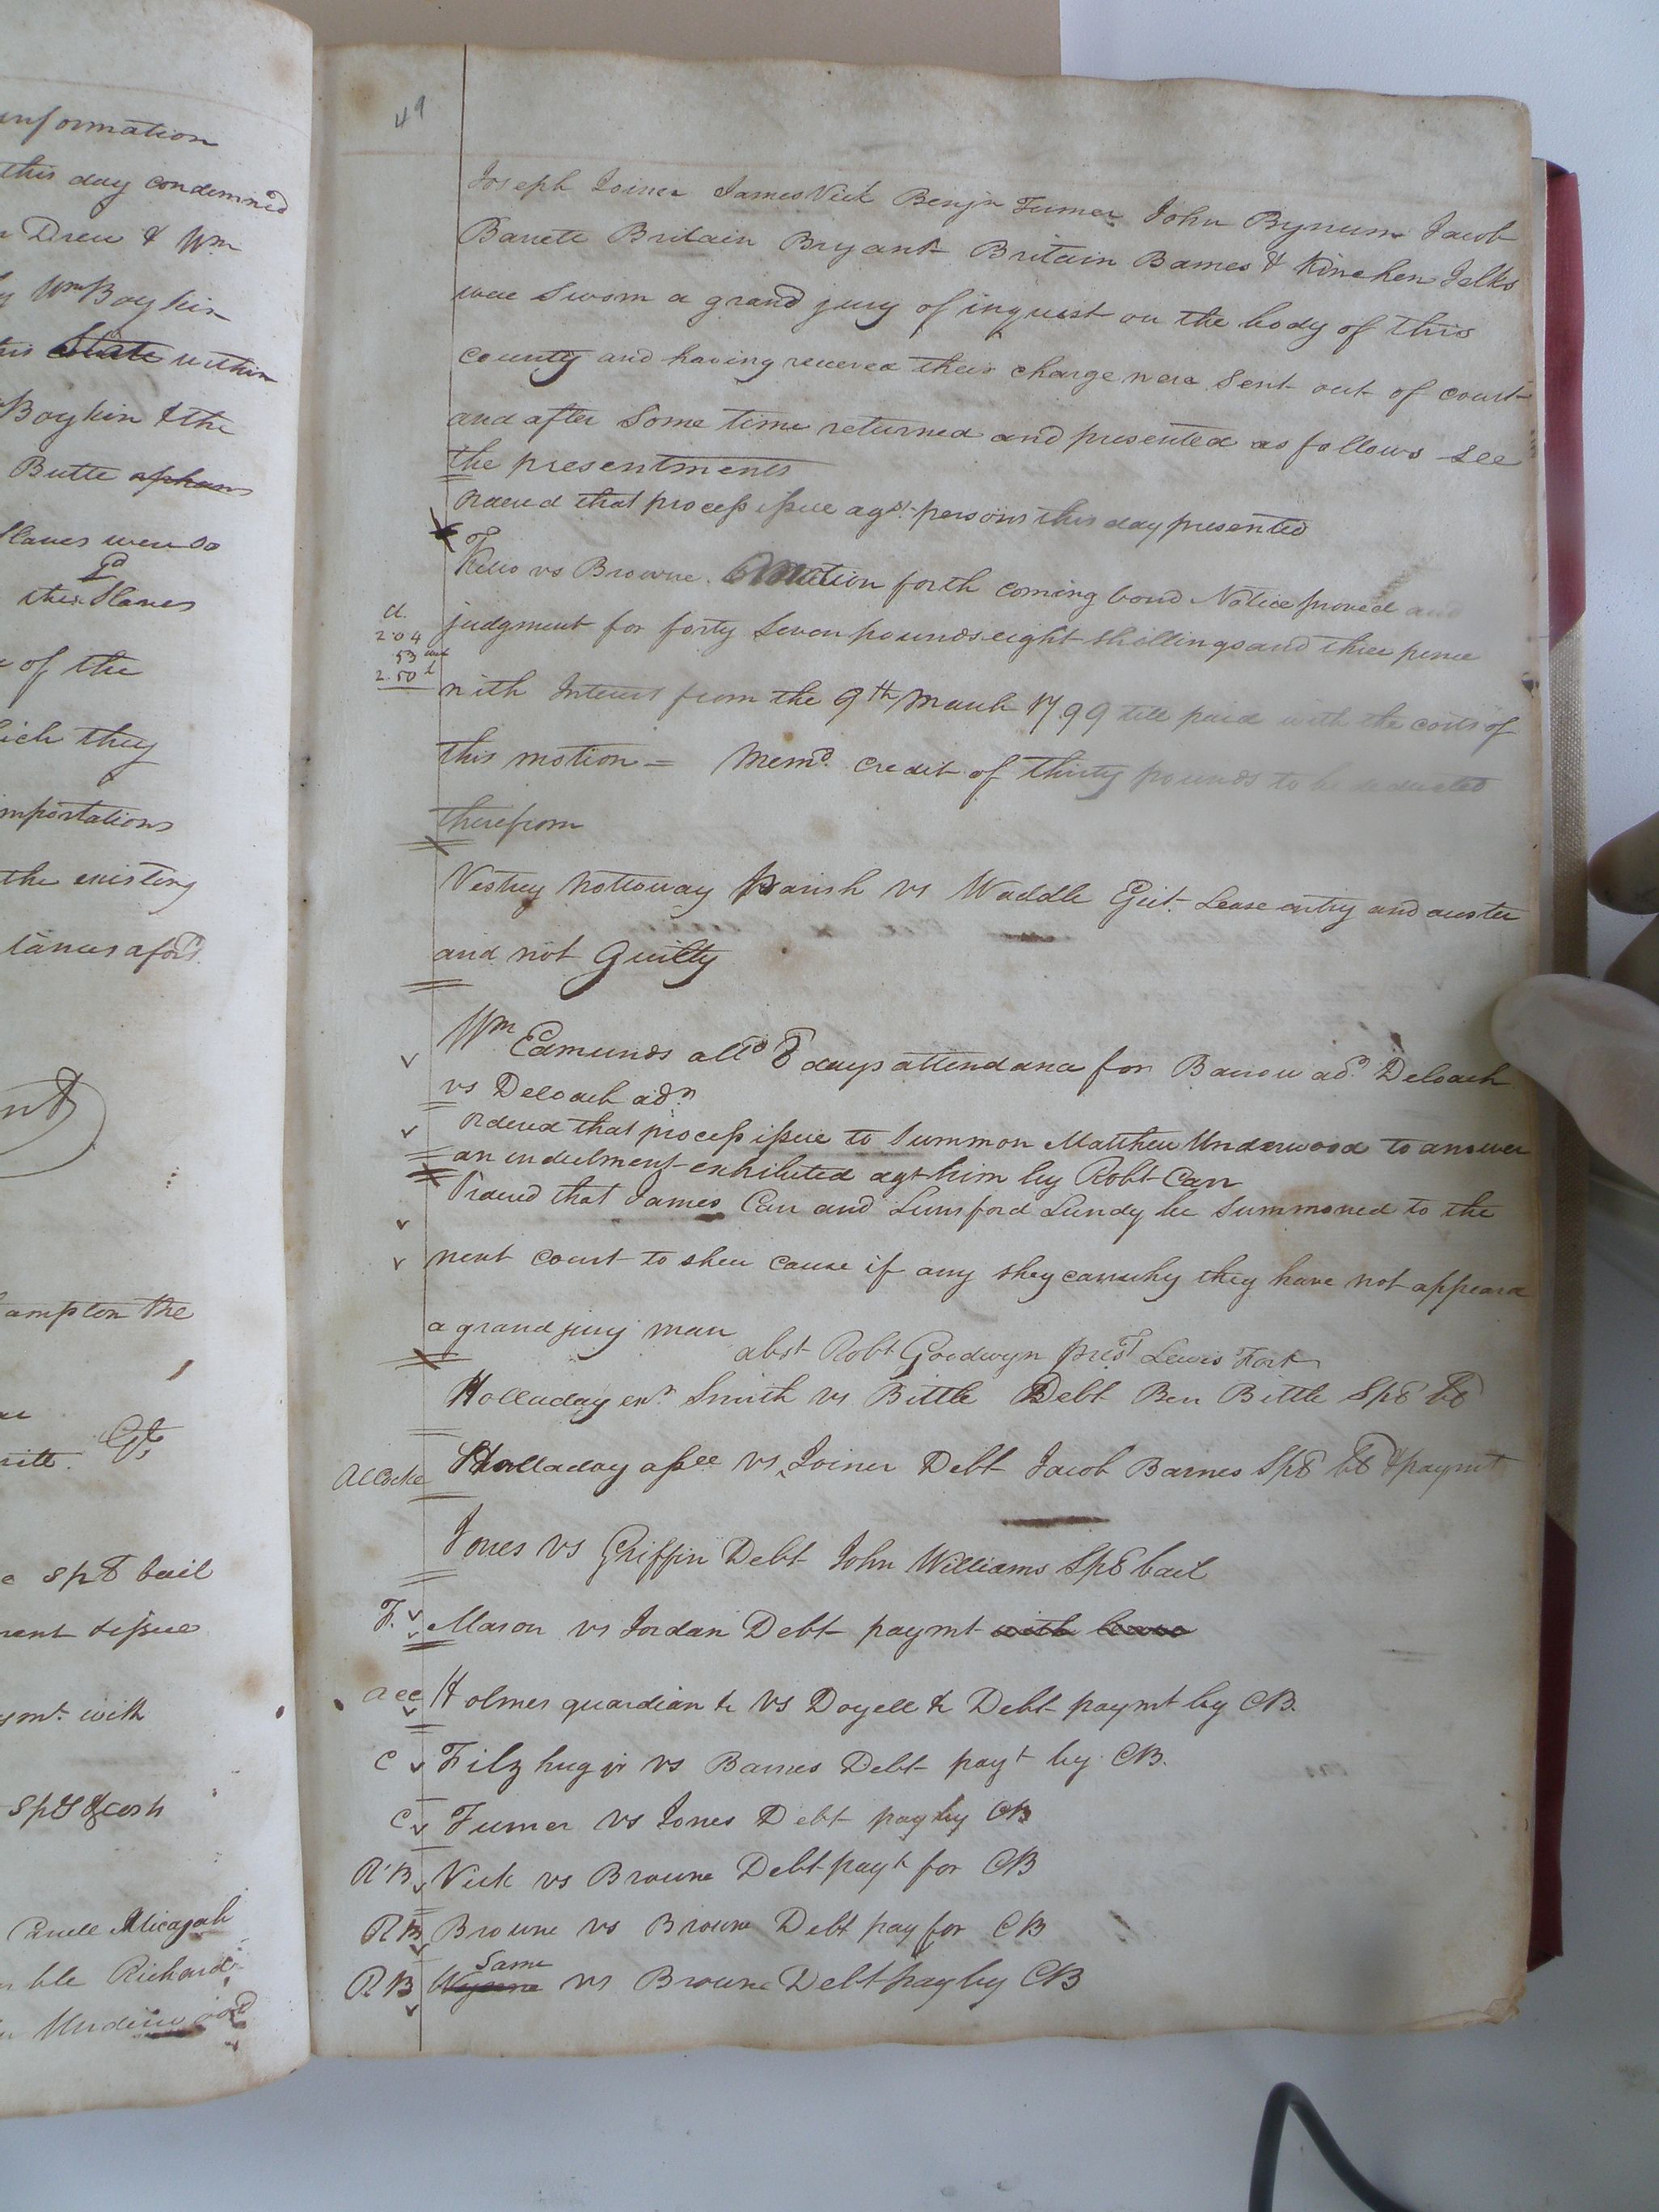 information
this day condemned
Drew & Wm
Wm Boykin
State within
Boykin & the
Butte orphans
slaves were so
sd
their Slaves
of the
ich they
mportations
the existing
tances afors.
ampton the
spe bail
ment & issue
ymt. with
Micajah
ble Richard
49
Joseph Joiner James Vick Benjn Turner John Bynum Jacob
Barnes Britain Bryant Britain Barnes & Kinchen Jelks
were Sworn a grand jury of inquest on the body of this
county and having received their charge were Sent out of court
and after Some time returned and presented as follows See
the presentments
Ordered that process issue agst. persons this day presented
Kello vs Browne. Motion forth coming bond Notice proved and
d.
2.04
53
2.50
judgment for forty Seven pounds eight Shillings and three pence
with Interest from the 9th March 1799 till paid with the costs of
this motion = Memo. Credit of thirty pounds to be deducted
therefrom
Vestry Nottoway Parish vs Waddle Ejet. Lease entry and ouster
and not Guilty
Wm Edmunds alld 8 days attendance for Barrow adr. Deloach
vs Deloach adr.
Ordered that process issue to Summon Matthew Underwood to answer
an indictment exhibited agt him by Robt Carr
Ordered that James Carr and Lunsford Lundy be Summoned to the
next court to shew cause if any they can why they have not appeard
a grand jury man
abst Robt Goodwyn prest Lewis Fort
Holladay exr. Smith vs Bittle Debt Ben Bittle Spe be
Holladay assee vs Joiner Debt Jacob Barnes Spe be & paymt
Jones vs Griffin Debt John Williams Spe bail
F. Mason vs Jordan Debt paymt with leave
acc Holmes guardian &c vs Doyell &c Debt paymt by CB.
C Fitzhugh vs Barnes Debt payt by CB.
C Turner vs Jones Debt pay by CB
RB Vick vs Browne Debt payt for CB
RB Browne vs Browne Debt pay for CB
Same
RB vs Browne Debt pay by CB